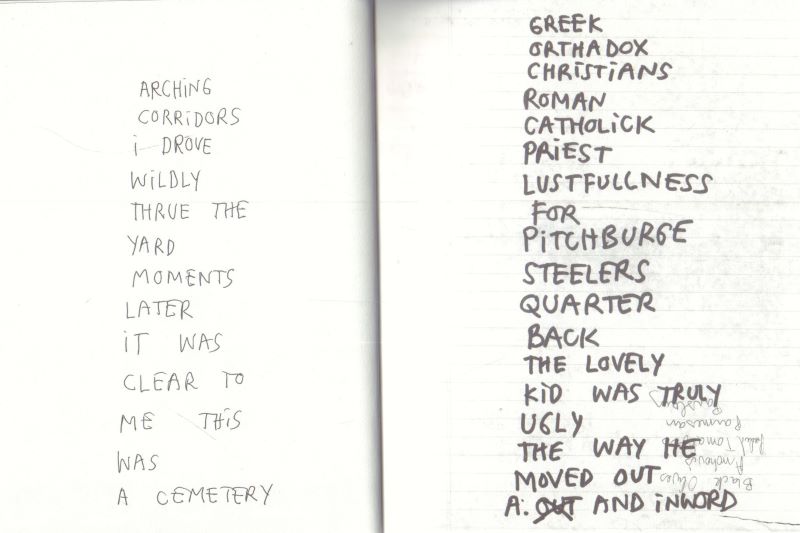 ARCHiNG
CORRiDORS
i DROVE
WiLDLY
THRUE THE
YARD
MOMENTS
LATER
iT WAS
CLEAR TO
ME THIS
WAS
A CEMETERY
GREEK
ORTHADOX
CHRiSTiANS
ROMAN
CATHOLICK
PRiEST
LUSTFULLNESS
FOR
PiTCHBURGE
STEELERS
QUARTER
BACK
THE LOVELY
KiD WAS TRULY
UGLY
THE WAY HE
MOVED OUT
A. OUT AND iNWORD
Black Olives
Anchovis
Tomatoes
Parmesan